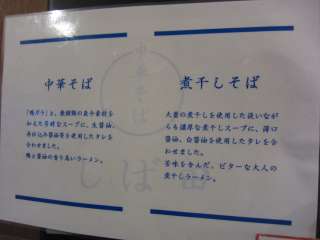 中華そば
「鶏ガラ」と、数種類の煮干素材を
加えた芳醇なスープに、生醤油、
再仕込み醤油等を使用したタレを
合わせました。
鶏と醤油の香り高いラーメン。
煮干しそば
大量の煮干しを使用した淡いなが
らも濃厚な煮干しスープに、薄口
醤油、白醤油を使用したタレを合
わせました。
苦味を含んだ、ビターな大人の
煮干しラーメン。
中華そば
しば田